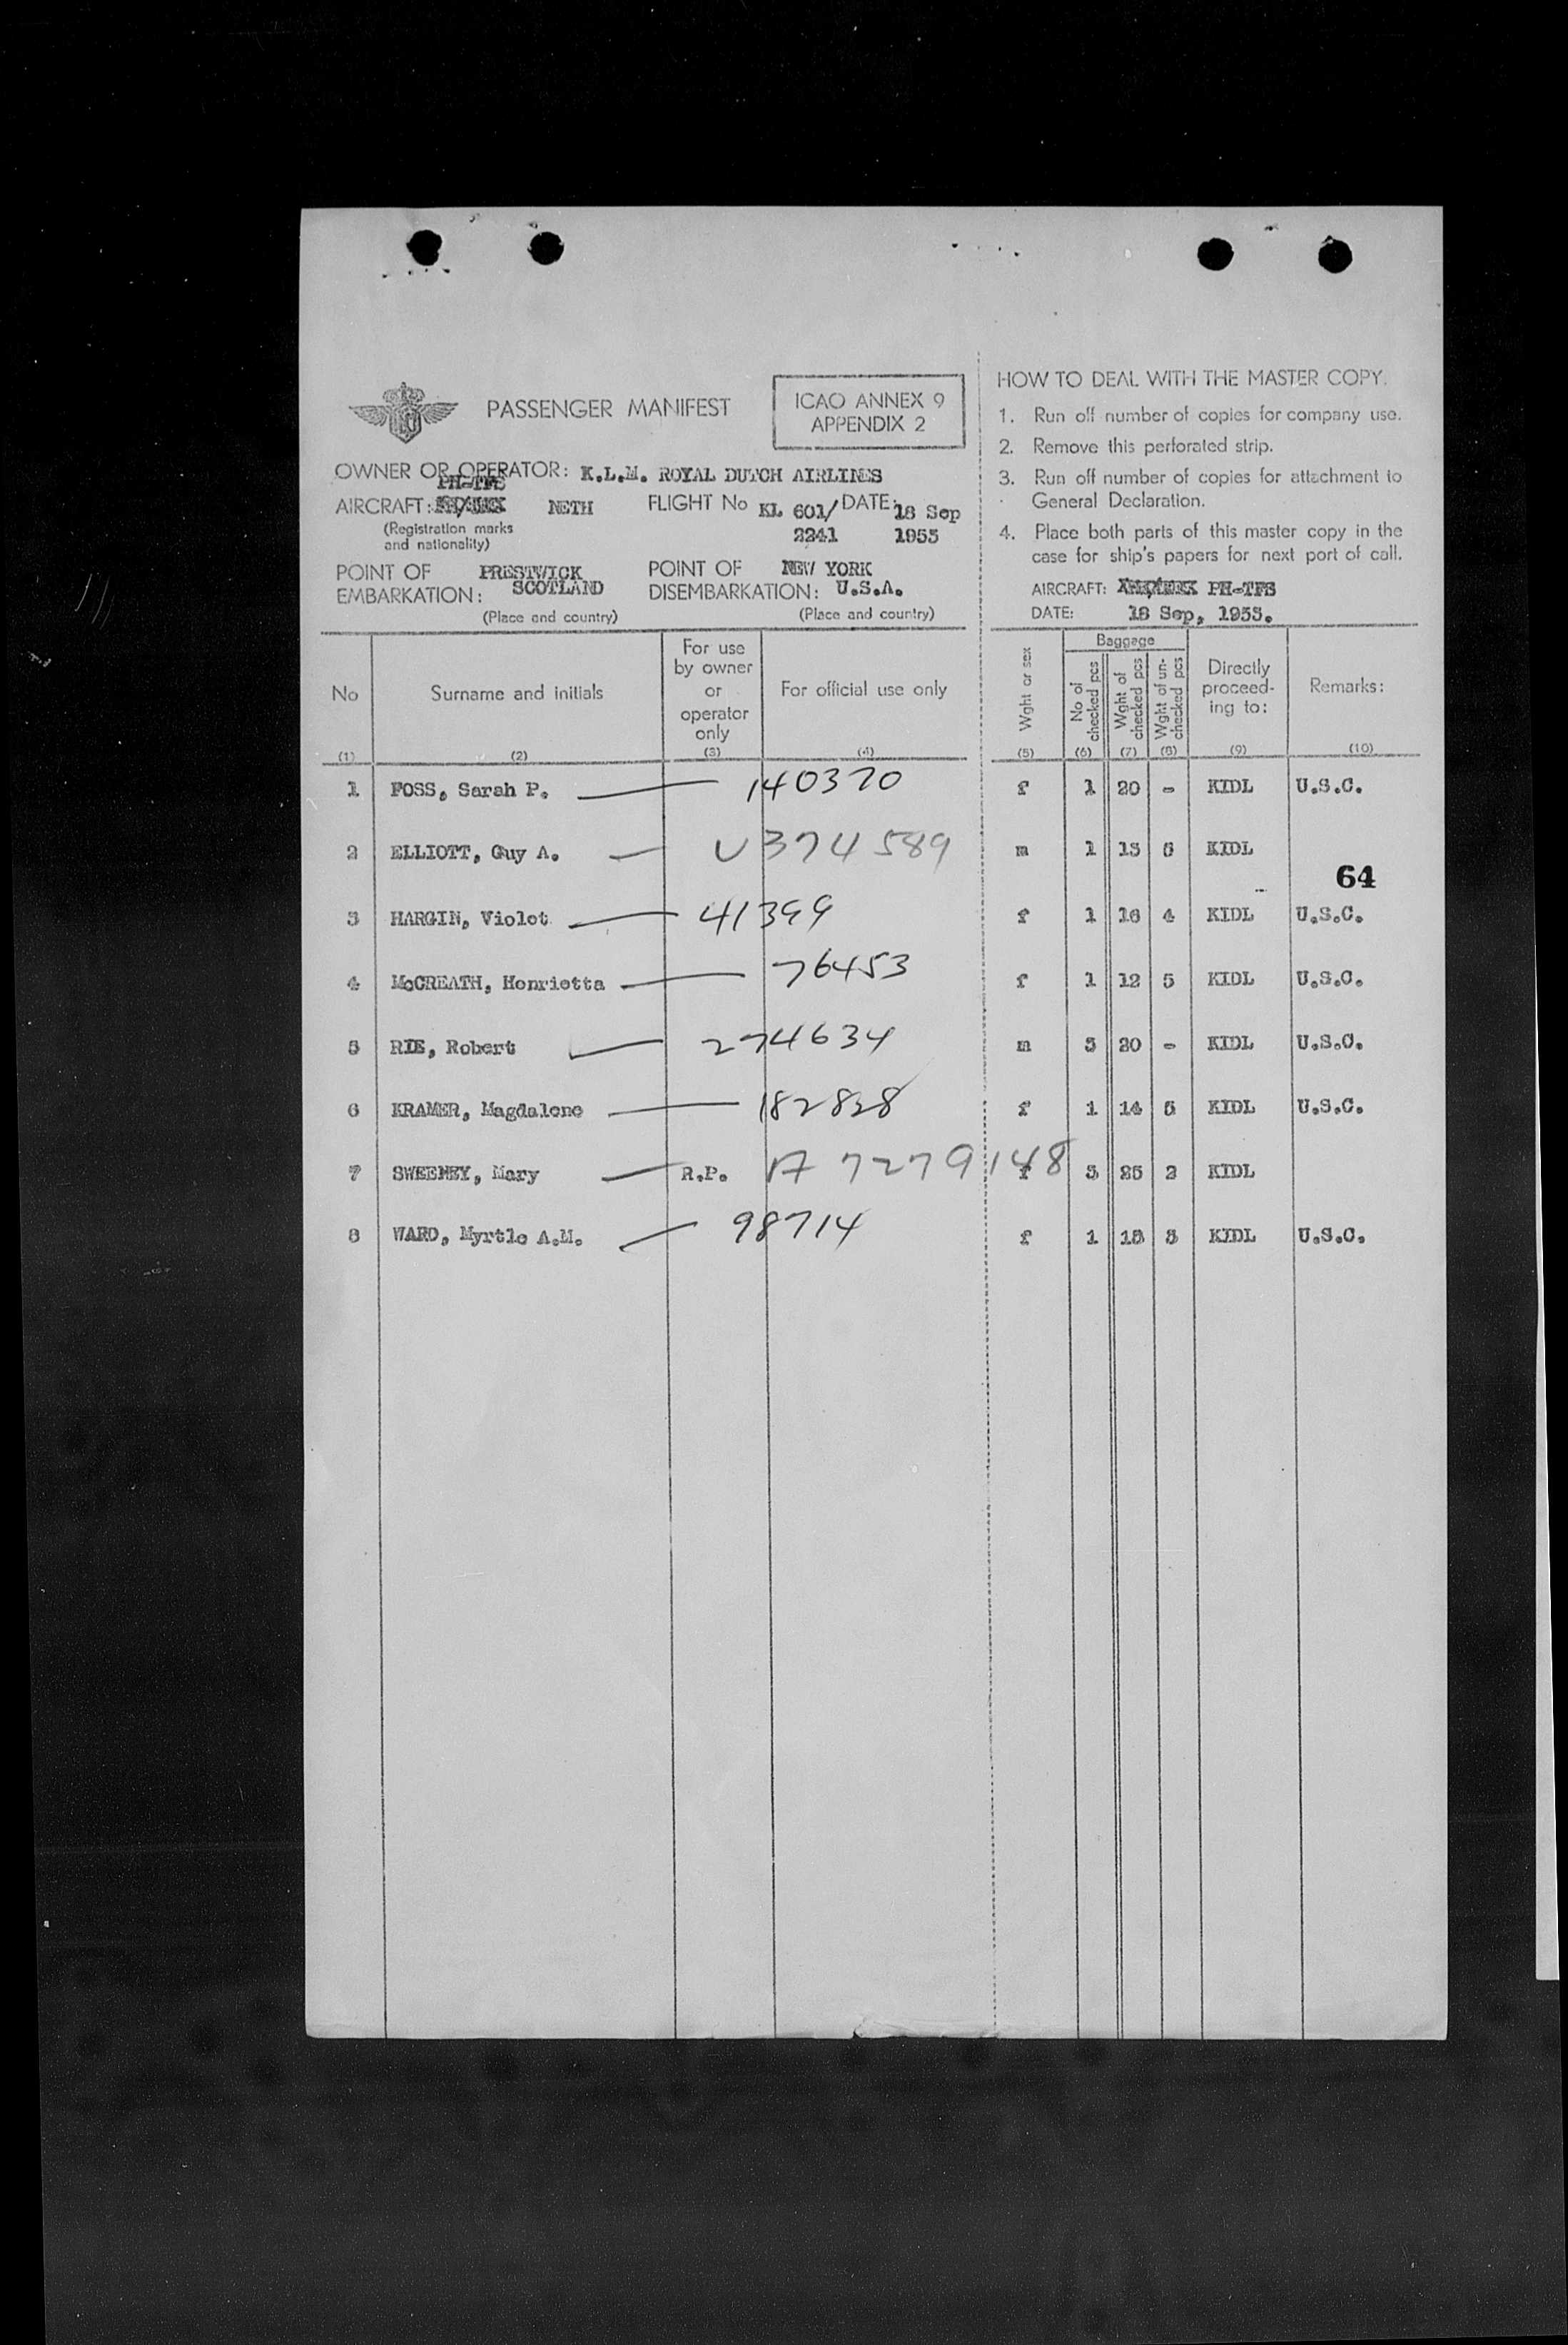 PASSENGER MANIFEST
ICAO ANNEX 9
APPENDIX 2
OWNER OR OPERATOR: K.L.M. ROYAL DUTCH AIRLINES
PH-TFS
AIRCRAFT: NETH FLIGHT No KL 601/ DATE: 18 Sep
(Registration marks
and nationality) 2241 1955
POINT OF PRESTWICK POINT OF NEW YORK
EMBARKATION: SCOTLAND DISEMBARKATION: U.S.A.
(Place and country) (Place and country)
HOW TO DEAL WITH THE MASTER COPY.
1. Run off number of copies for company use.
2. Remove this perforated strip.
3. Run off number of copies for attachment to
General Declaration.
4. Place both parts of this master copy in the
case for ship's papers for next port of call.
AIRCRAFT: PH-TFS
DATE: 18 Sep, 1955.
No Surname and initials For use by owner or operator only For official use only Wght or sex Baggage No of checked pcs Wght of checked pcs Wght of un-checked pcs Directly proceed-ing to: Remarks:
(1) (2) (3) (4) (5) (6) (7) (8) (9) (10)
1 FOSS, Sarah P. 140370 f 1 20 - KIDL U.S.C.
2 ELLIOTT, Guy A. V374589 m 1 15 5 KIDL
64
3 HARGIN, Violet 41399 f 1 16 4 KIDL U.S.C.
4 McCREATH, Henrietta 76453 f 1 12 5 KIDL U.S.C.
5 RIE, Robert 274634 m 3 20 - KIDL U.S.C.
6 KRAMER, Magdalene 182828 f 1 14 5 KIDL U.S.C.
7 SWEENEY, Mary R.P. A 7279148 f 3 25 2 KIDL
8 WARD, Myrtle A.M. 98714 f 1 15 3 KIDL U.S.C.